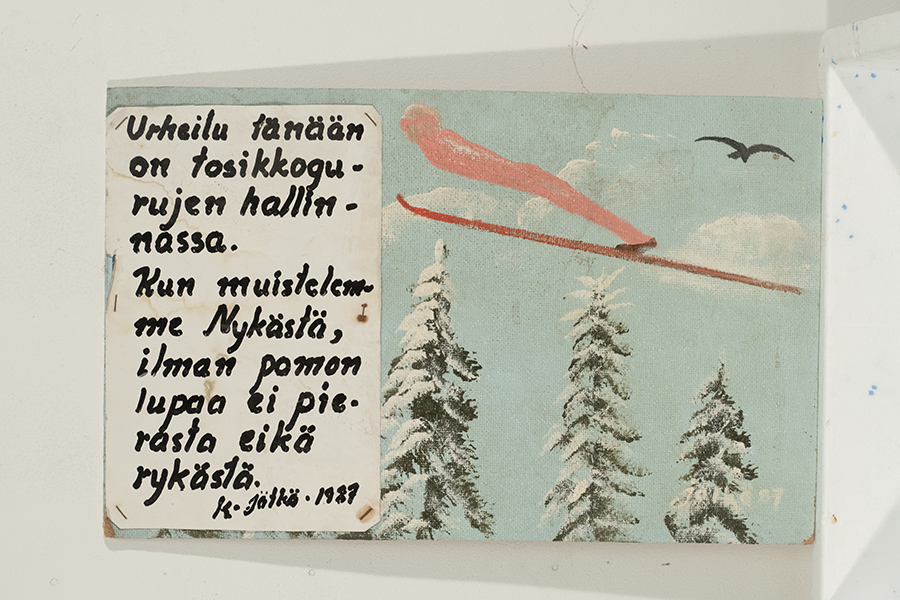 Urheilu tänään
on tosikkogu-
rujen hallin-
nassa.
Kun muistelem-
me Nykästä,
ilman pomon
lupaa ei pie-
rasta eikä
rykästä.
K. Jätkä. 1987
JÄTKÄ 87